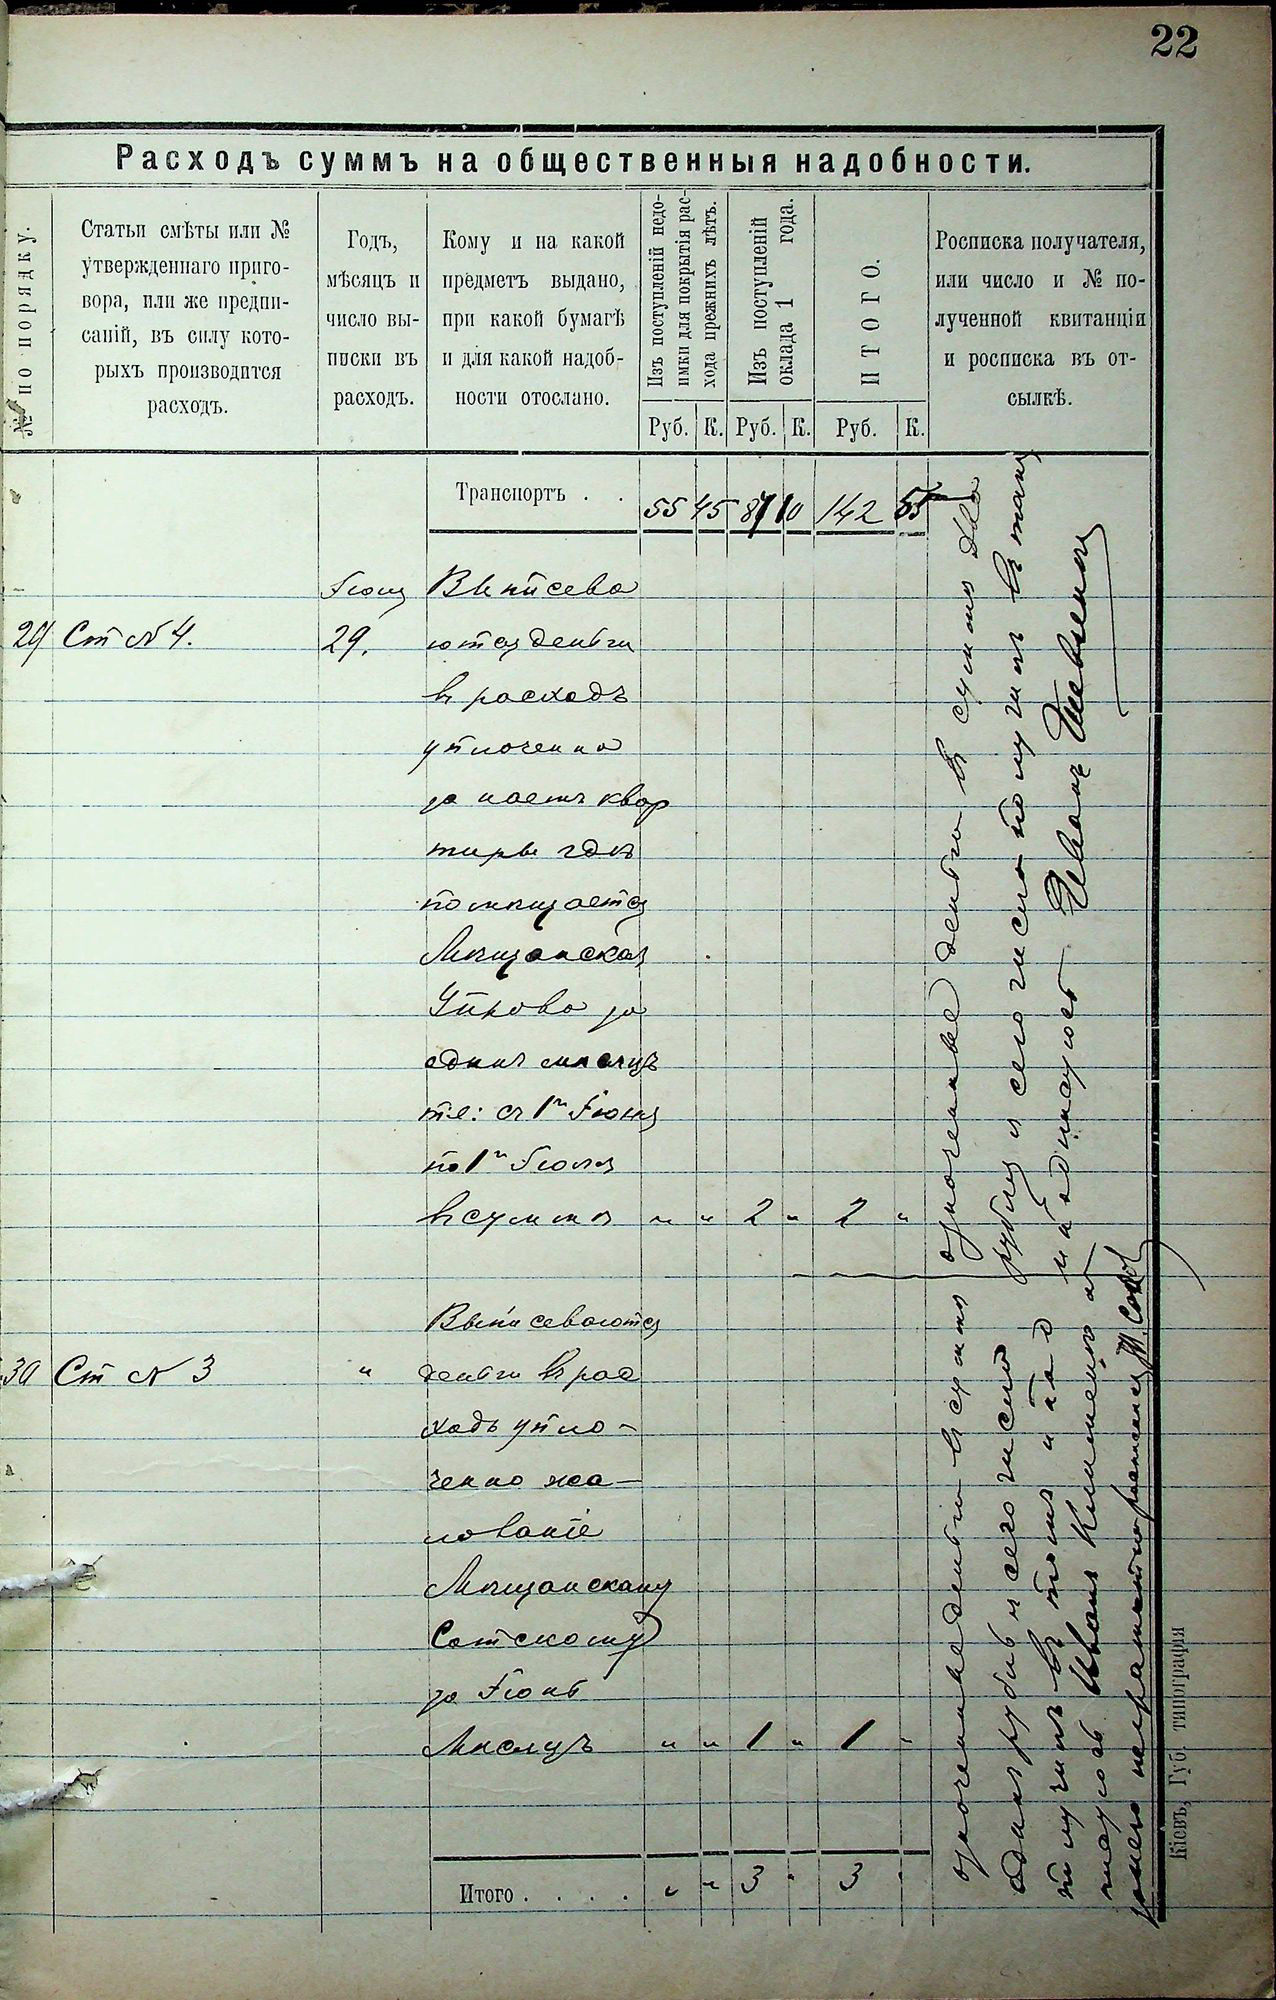 22
Расходъ суммъ на общественныя надобности.
№ по порядку.
Статьи смѣты или №
утвержденнаго приго-
вора, или же предпи-
саній, въ силу кото-
рыхъ производится
расходъ.
Годъ,
мѣсяцъ и
число вы-
писки въ
расходъ.
Кому и на какой
предметъ выдано,
при какой бумагѣ
и для какой надоб-
ности отослано.
Изъ поступленій недо-
имки для покрытія рас-
хода прежнихъ лѣтъ.
Изъ поступленій
оклада 1 года.
ИТОГО.
Росписка получателя,
или число и № по-
лученной квитанціи
и росписка въ от-
сылкѣ.
Руб. К. Руб. К. Руб. К.
Транспортъ . . 55 45 87 10 142 55
Выписева
29 Ст № 4. 29. ются деньги
въ расходъ
уплоченно
за наемъ квар
тиры гдѣ
помѣщается
Мѣщанская
Управа за
одинъ мѣсяцъ
т:е: съ 1го Іюня
по 1е Іюля
въ сумме " " 2 " 2 "
Выписеваются
30 Ст № 3 " деньги въ рас
ходъ упло-
ченно жа-
лованіе
Мѣщанскаму
Сотскому
за Іюнь
Мѣсяцъ " " 1 " 1 "
Итого . . . . " " 3 " 3 "
означенные деньги въ сумме два
рубля сего числа получилъ въ томъ
и подписуюсь Иванъ Шевченко
означенные деньги въ сумме
одинъ рубль сего числа
получилъ въ томъ и под
писуюсь Иванъ
Кіевъ, Губ. типографія